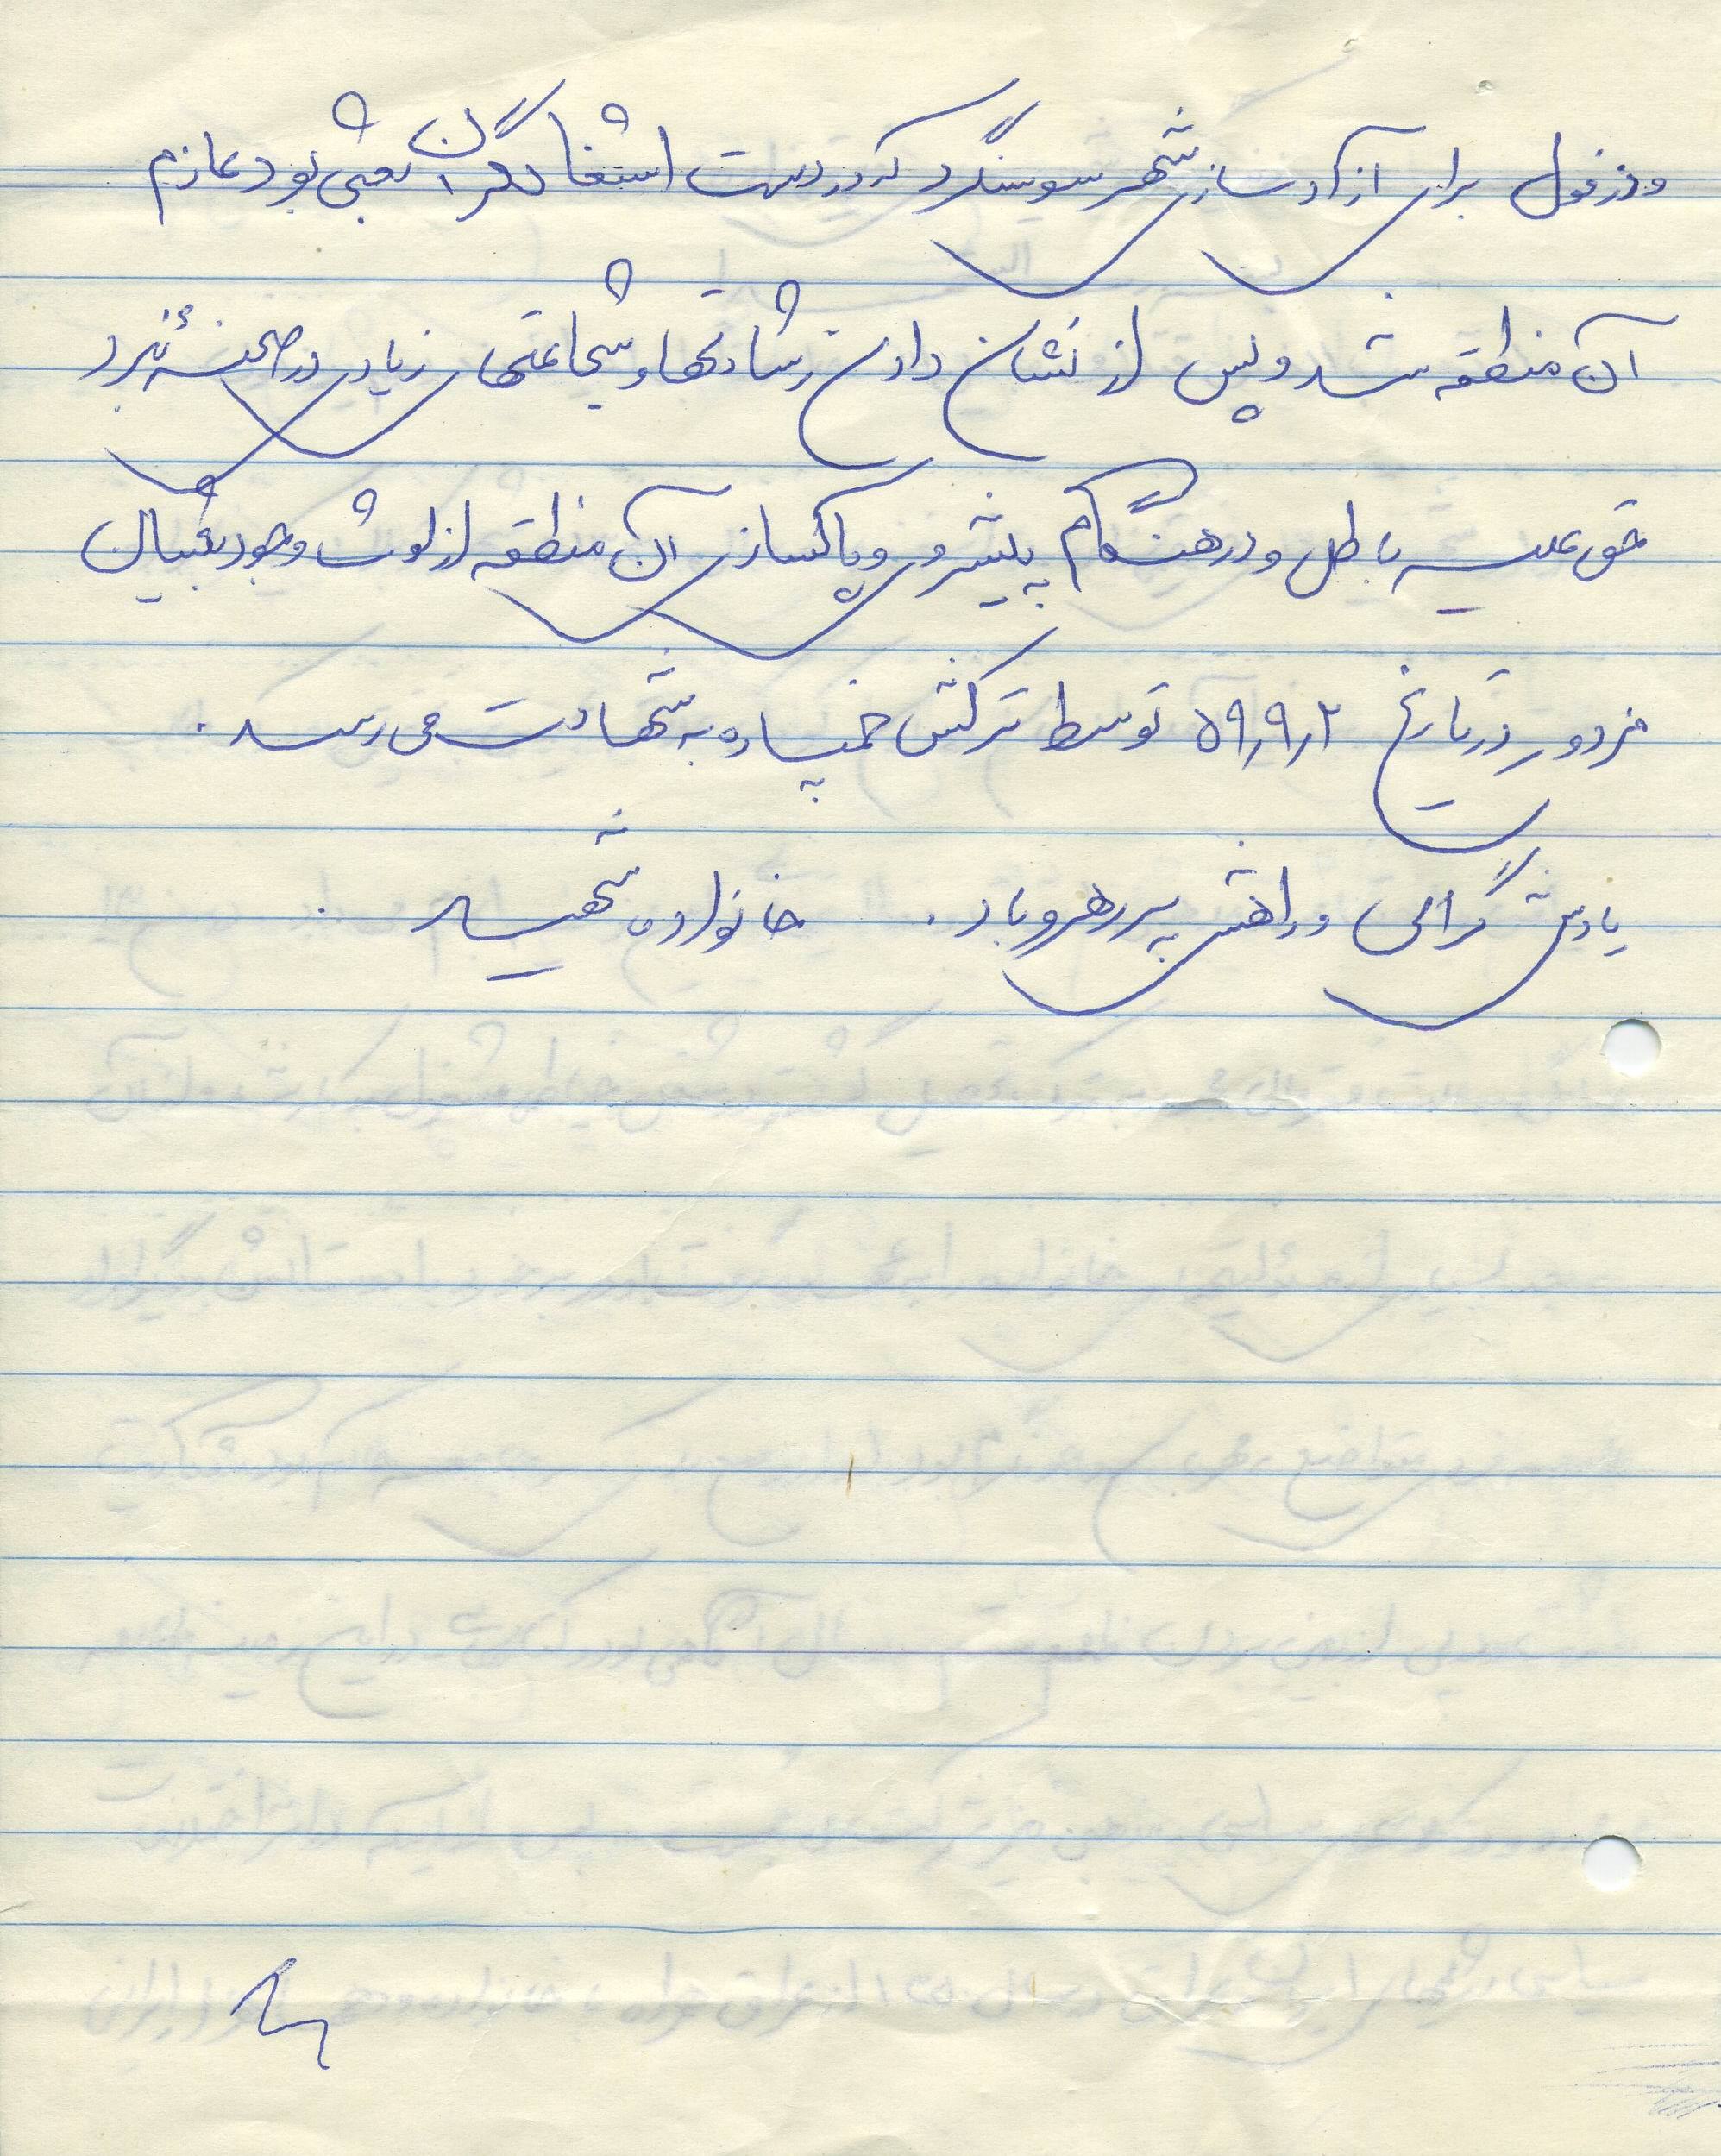 ودزفول برای آزادسازی شهر سوسنگرد که در دست اشغالگران بعثی بود عازم
آن منطقه شد و پس از نشان دادن رشادتها و شجاعتهای زیادی در صحنهٔ نبرد
حق علیه باطل و در هنگام پیشروی و پاکسازی آن منطقه از لوث وجود بعثیان
مزدور در تاریخ ۵۹/۹/۲ توسط ترکش خمپاره به شهادت می رسد.
یادش گرامی و راهش پر رهرو باد. خانواده شهید.